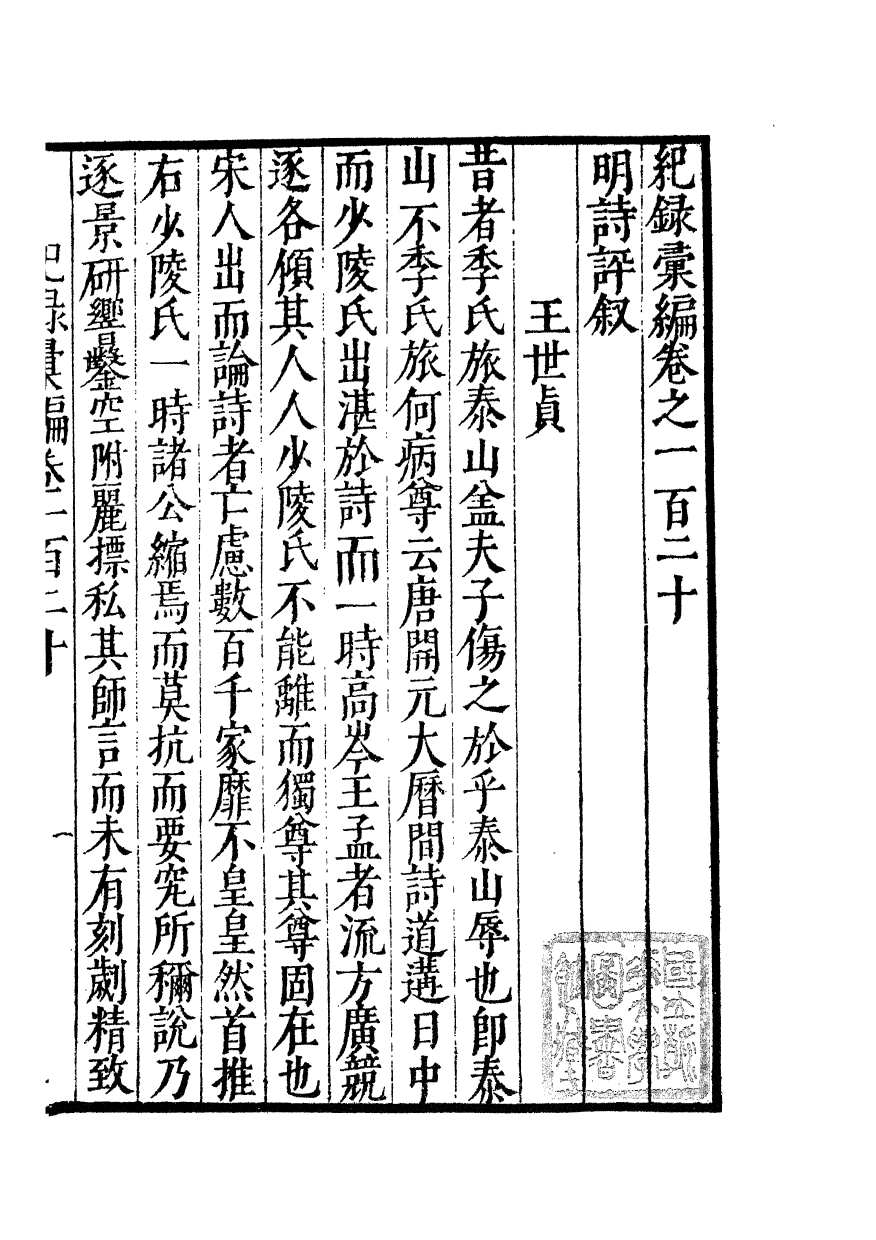 紀録彚編卷之一百二十
明詩評叙
王世貞
昔者季氏旅泰山盖夫子傷之於乎泰山辱也卽泰
山不季氏旅何病尊云唐開元大曆間詩道遘日中
而少陵氏出湛於詩而一時高岑王孟者流方廣競
逐各傾其人人少陵氏不能離而獨尊其尊固在也
宋人出而論詩者亡慮數百千家靡不皇皇然首推
右少陵氏一時諸公縮焉而莫抗而要究所稱說乃
逐景研響鑿空附麗摽私其師言而未有刻劌精致
紀録彚編卷一百二十
一